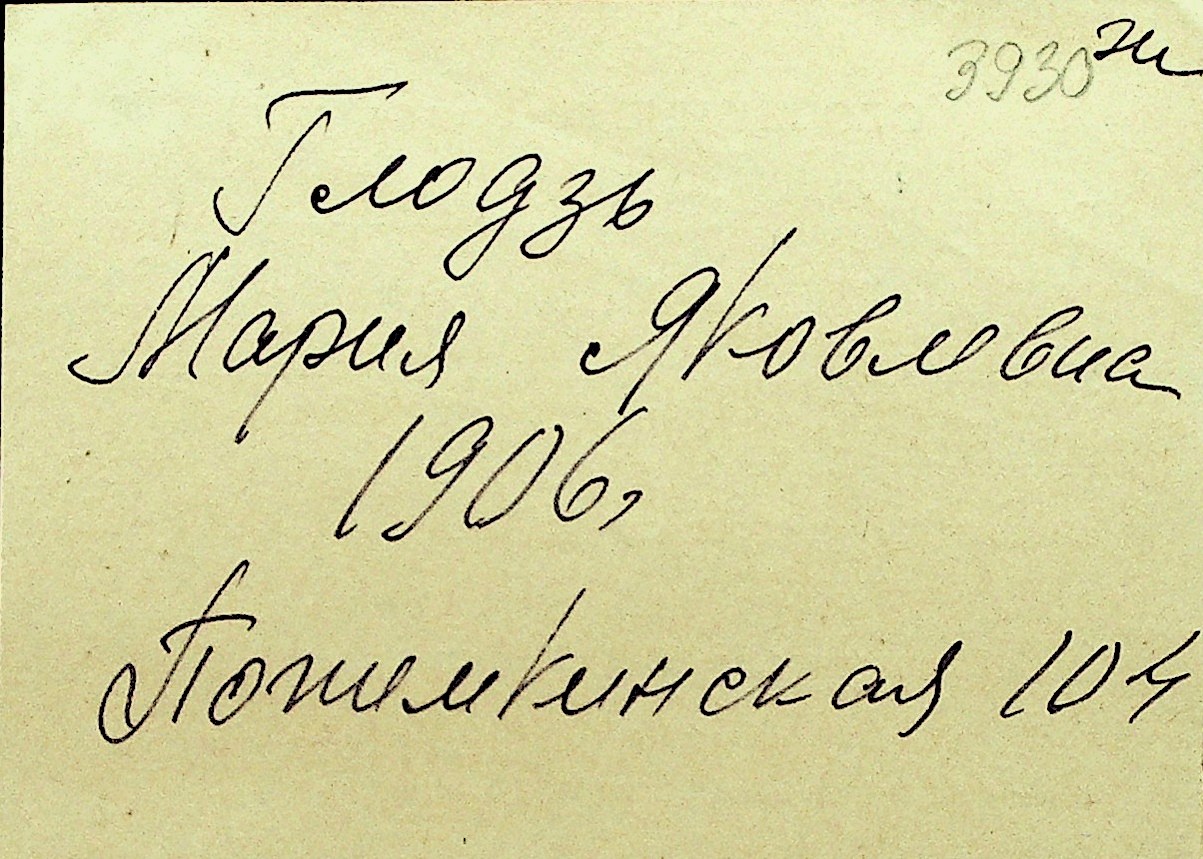 3930 ж
Глодзь
Мария Яковлевна
1906,
Потемкинская 104